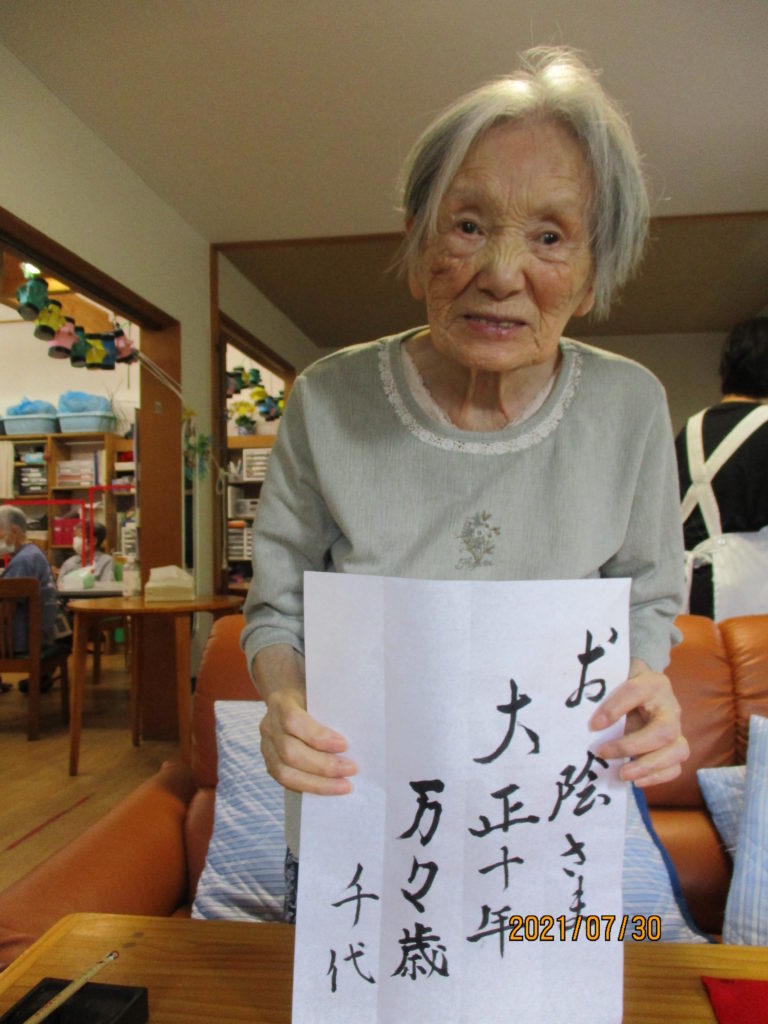 お陰さま
大正十年
万々歳
千代
2021/07/30